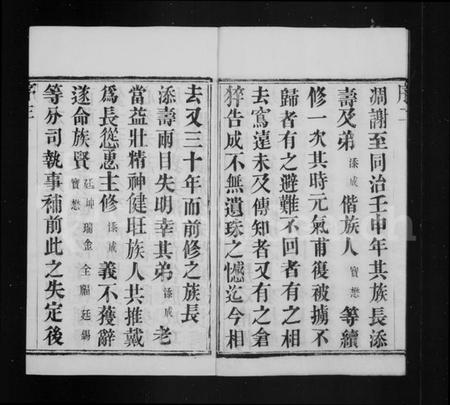 序二
凋謝至同治壬申年其族長添
壽及弟添成偕族人寶懋等續
修一次其時元氣甫復被擄不
歸者有之避難不回者有之相
去寫遠未及傳知者又有之倉
猝告成不無遺珠之憾迄今相
去又三十年而前修之族長
添壽兩目失明幸其弟添成老
當益壯精神健旺族人共推戴
為長慫恿主修添成義不獲辭
遂命族賢廷坤寶懋瑞金全廷錫
等分司執事補前此之失定後
序三